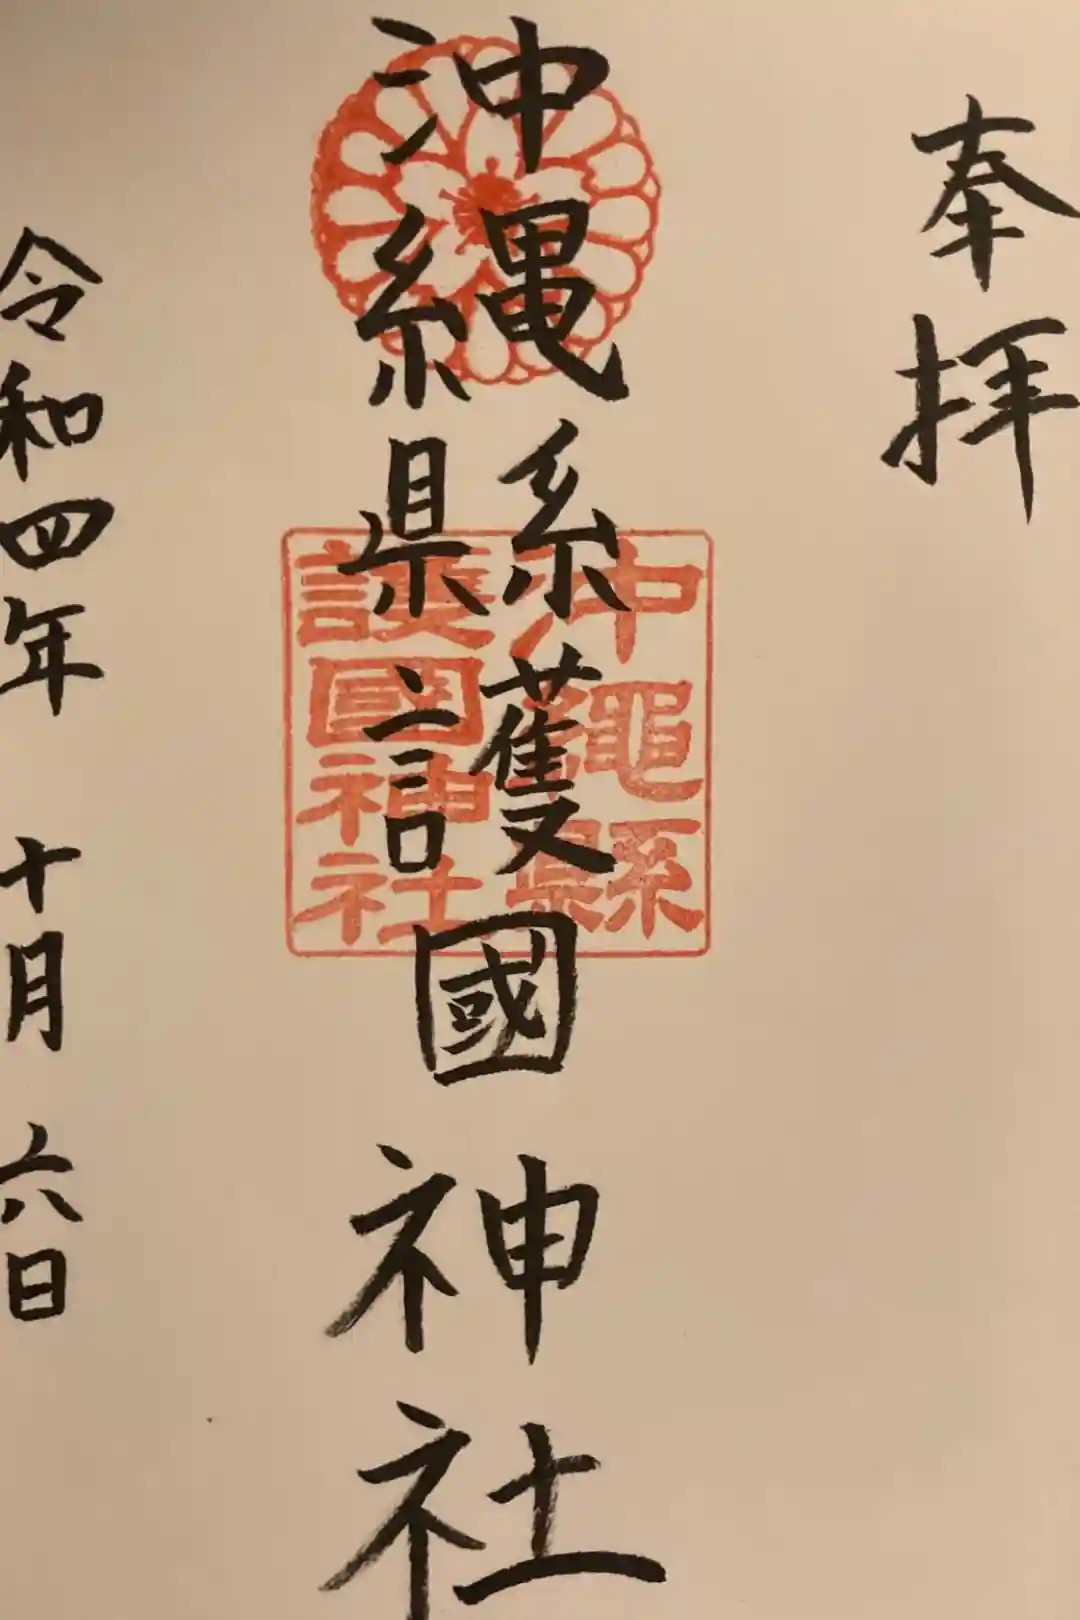 奉拝
沖縄縣護國神社
沖縄縣
護國神社
令和四年 十月 六日